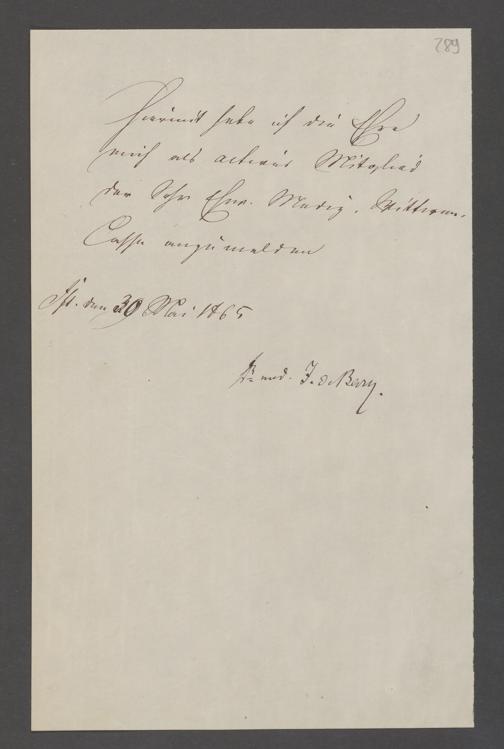 289
Hiermit habe ich die Ehre
mich als actives Mitglied
der Sehr Ehrw. Mediz. Wittwen-
Casse anzumelden
Fft. den 30 Mai 1865
Dr med. J. de Bary.